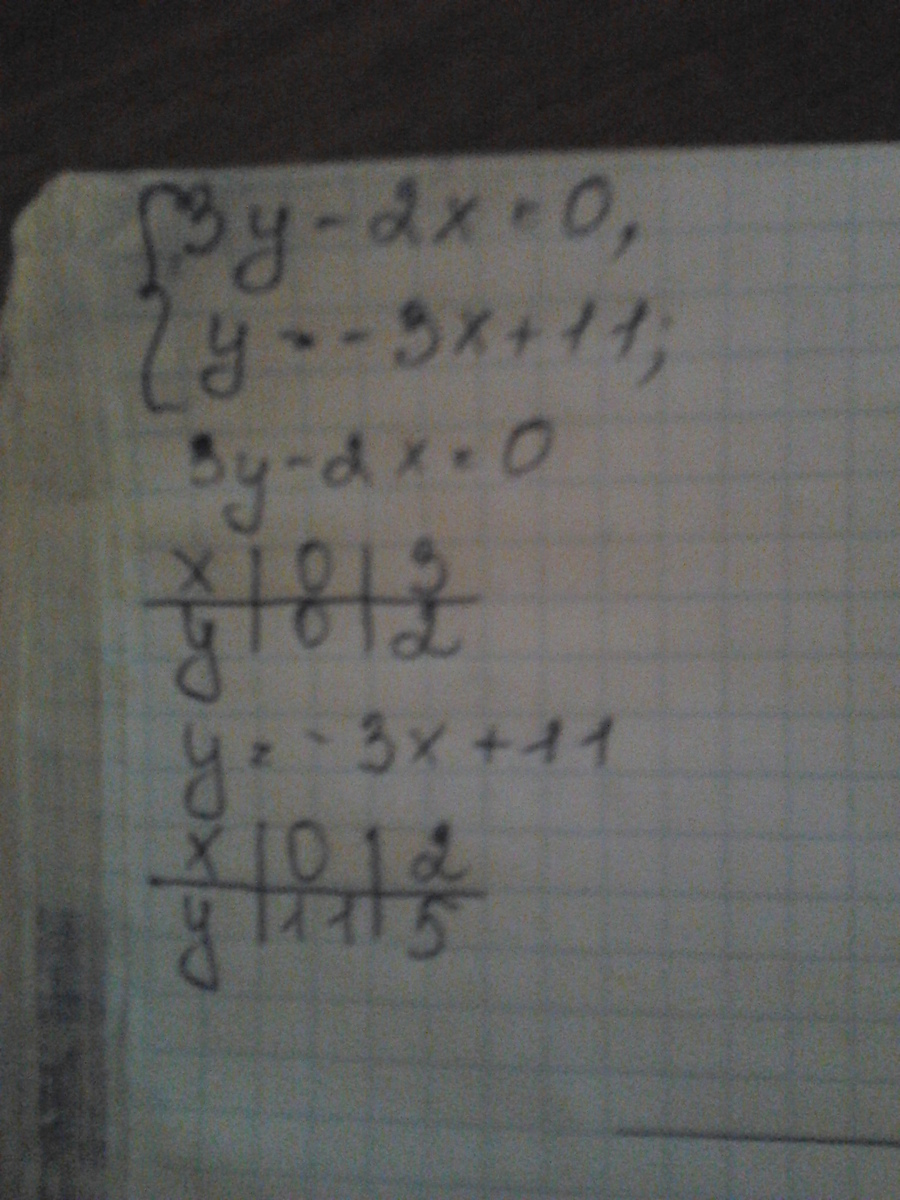 {3y - 2x = 0,
{y = -3x + 11;
3y - 2x = 0
x | 0 | 3
y | 0 | 2
y = -3x + 11
x | 0 | 2
y | 11 | 5